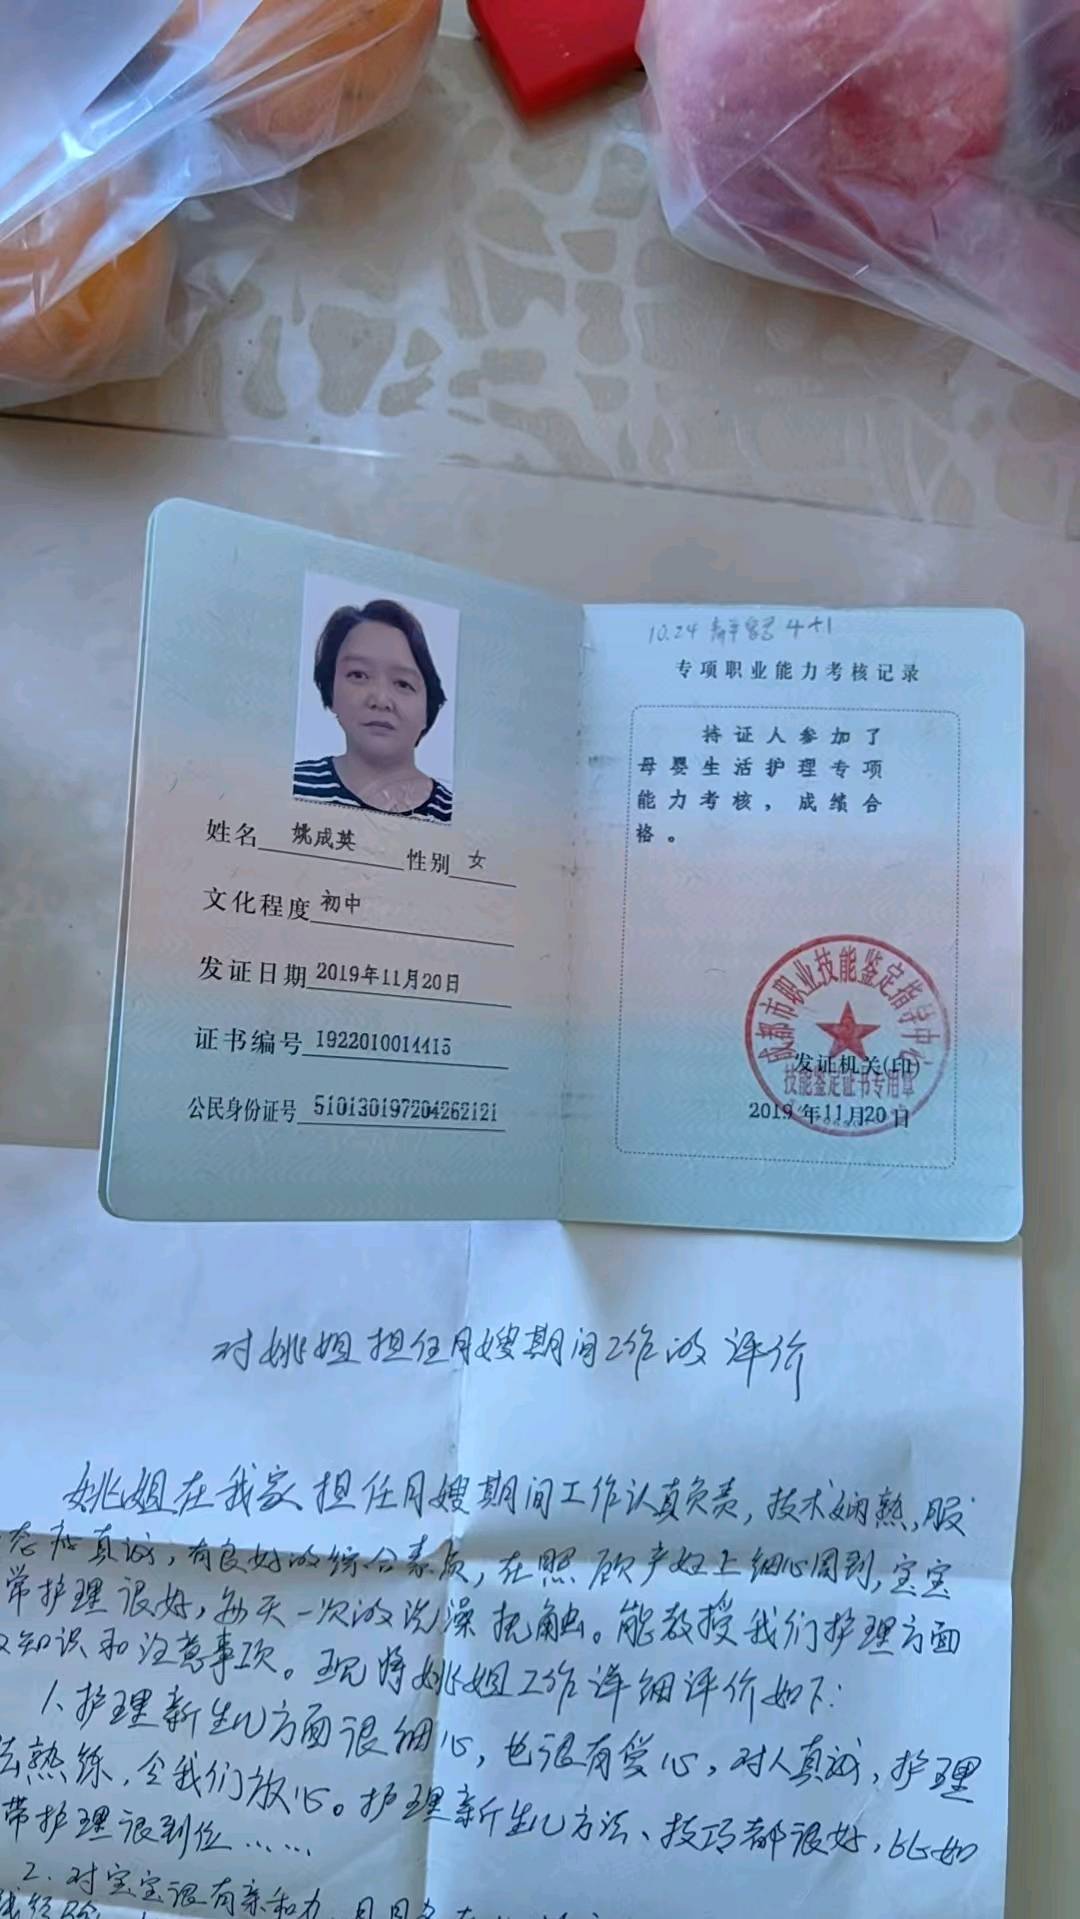 姓名 姚成英 性别 女
文化程度 初中
发证日期 2019年11月20日
证书编号 1922010014415
公民身份证号 510130197204262121
10.24
专项职业能力考核记录
持证人参加了
母婴生活护理专项
能力考核，成绩合
格。
成都市职业技能鉴定指导中心
发证机关(印)
技能鉴定证书专用章
2019年11月20日
对姚姐担任月嫂期间工作的评价
姚姐在我家担任月嫂期间工作认真负责，技术娴熟，服
态度真诚，有良好的综合素质，在照顾产妇上细心周到，宝宝
常护理很好，每天一次的洗澡抚触。能教授我们护理方面
知识和注意事项。现将姚姐工作详细评价如下：
1、护理新生儿方面很细心，也很有爱心，对人真诚，护理
法熟练，令我们放心。护理新生儿方法、技巧都很好，比如
带护理很到位……
2、对宝宝很有亲和力，